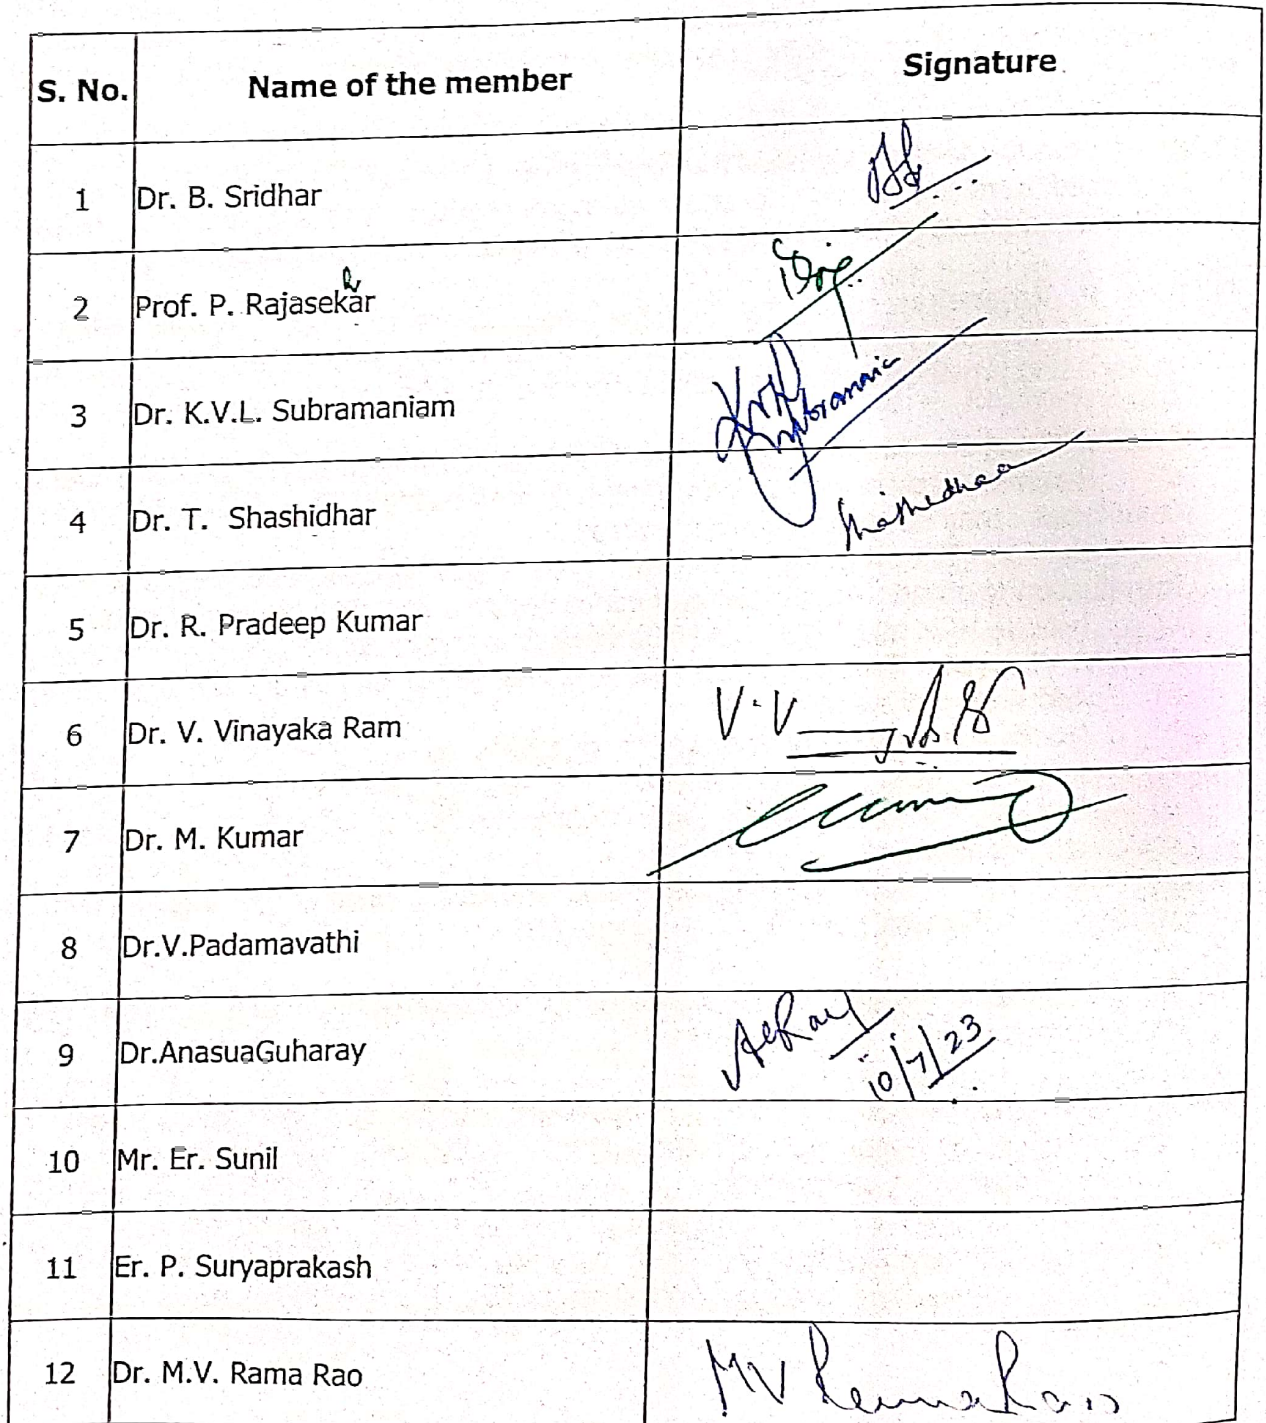 S. No. Name of the member Signature
1 Dr. B. Sridhar
2 Prof. P. Rajasekar h
3 Dr. K.V.L. Subramaniam KVL Subramania
4 Dr. T. Shashidhar Shashidhaa
5 Dr. R. Pradeep Kumar
6 Dr. V. Vinayaka Ram V.V
7 Dr. M. Kumar
8 Dr.V.Padamavathi
9 Dr.AnasuaGuharay AGRay 10/7/23
10 Mr. Er. Sunil
11 Er. P. Suryaprakash
12 Dr. M.V. Rama Rao MV Rama Rao